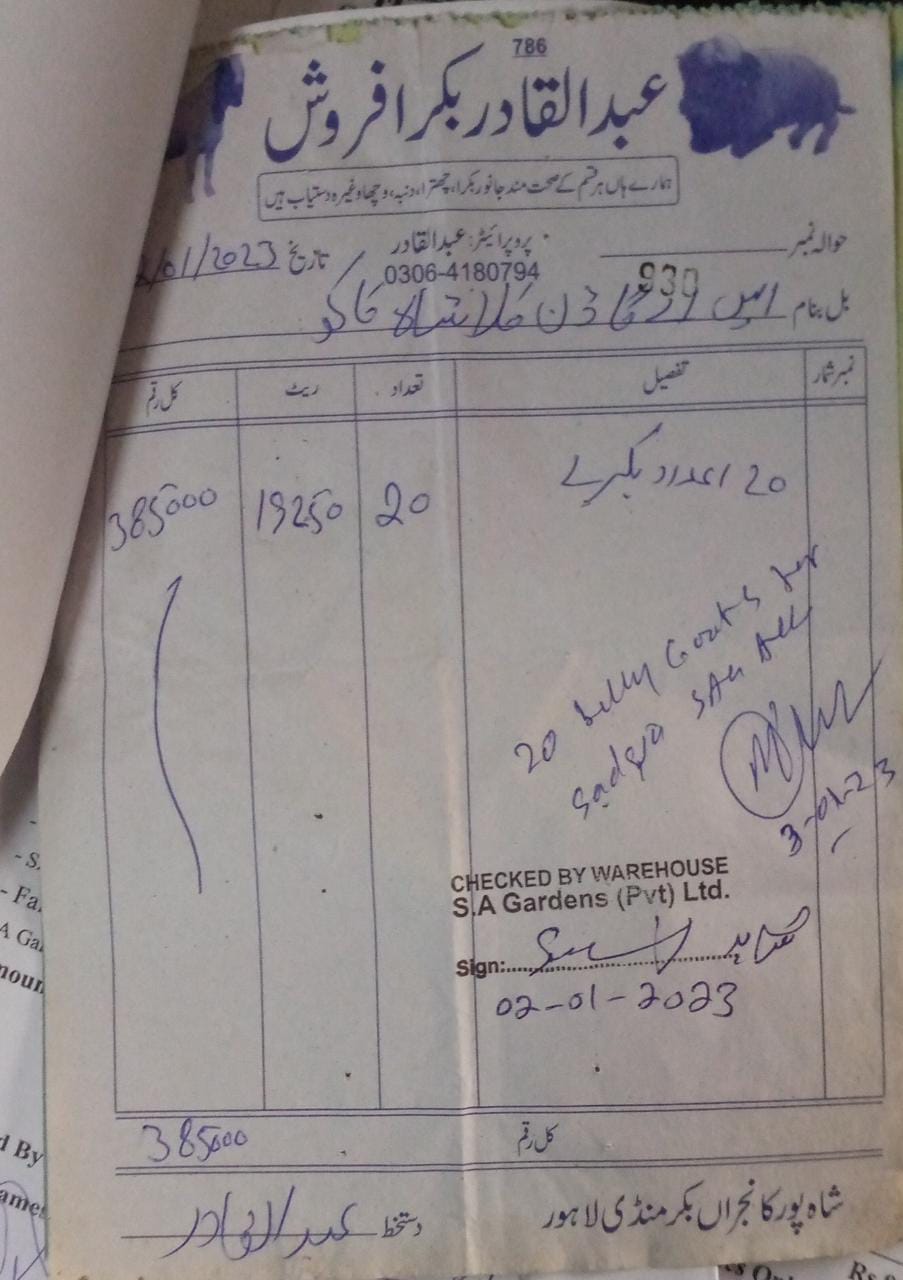 786
عبدالقادر بکرا فروش
ہمارے ہاں ہر قسم کے صحت مند جانور بکرا، چھترا، دنبہ، وچھا وغیرہ دستیاب ہیں
حوالہ نمبر
پروپرائیٹر: عبدالقادر
تاریخ /01/2023
0306-4180794
930
بل بنام ایس اے گارڈن کالا شاہ کاکو
نمبر شمار تفصیل تعداد ریٹ کل رقم
20 اعداد بکرے 20 19250 385000
20 Goats for
Sadqa
3-01-23
CHECKED BY WAREHOUSE
S.A Gardens (Pvt) Ltd.
Sign:
02-01-2023
کل رقم 385000
شاہ پور کانجراں بکر منڈی لاہور
دستخط عبدالقادر
- S.
- Fa
A Ga
moun
d By
ame
Rs